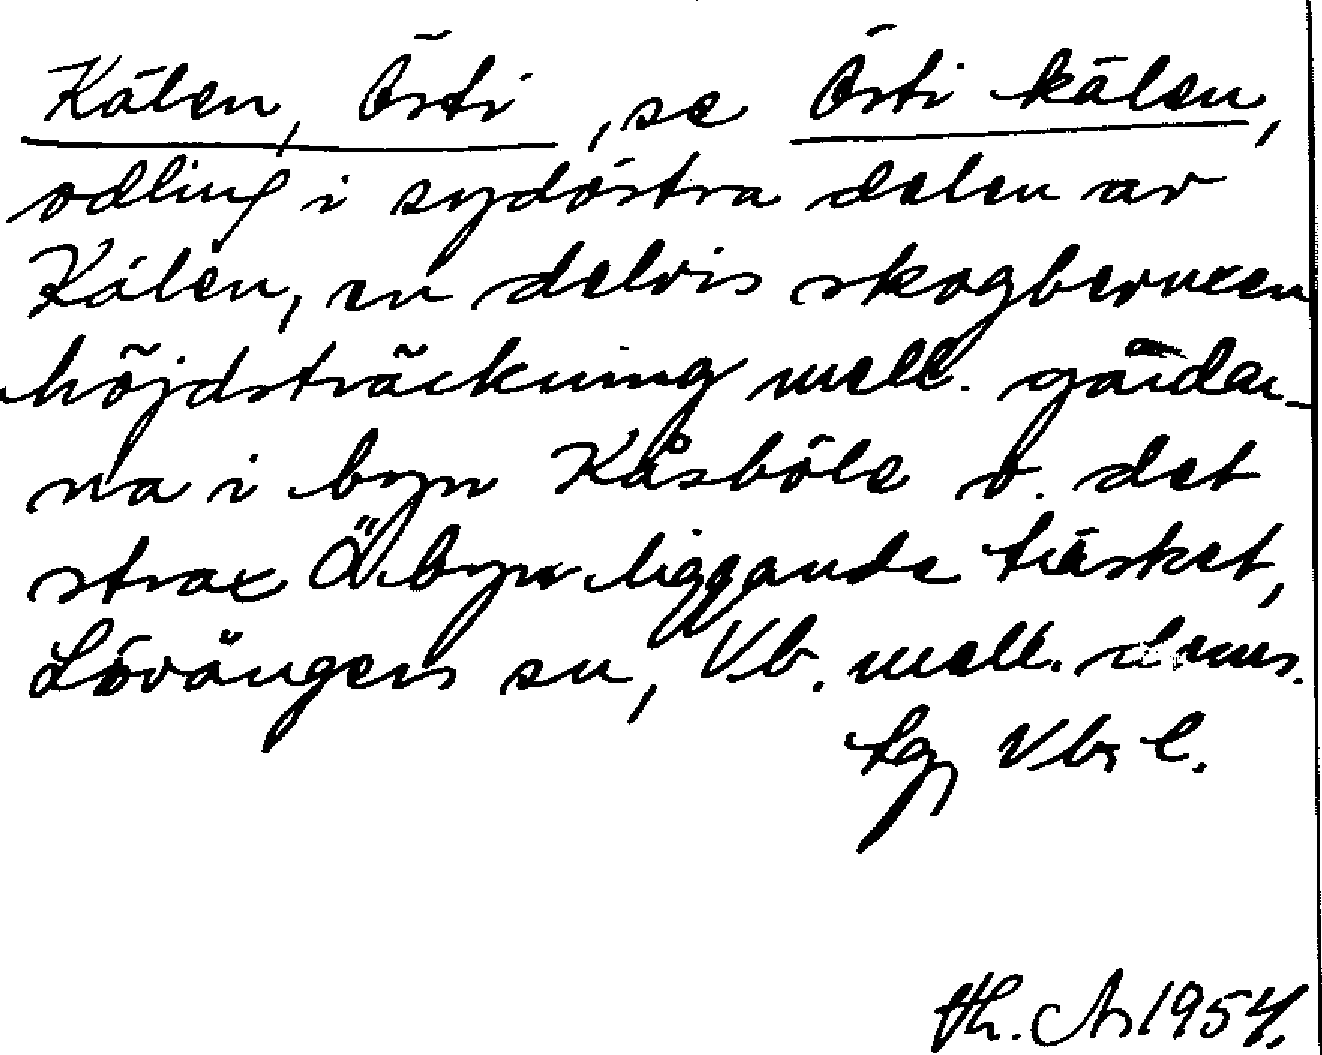 Kälen, Östi, se Östi kälen,
odling i sydöstra delen av
Kälen, en delvis skogbevuxen
höjdsträckning mell. gårdar-
na i byn Kåsböle o. det
strax Ö byn liggande träsket,
Lövångers sn, Vb. mell.
Vb. l.
1954.